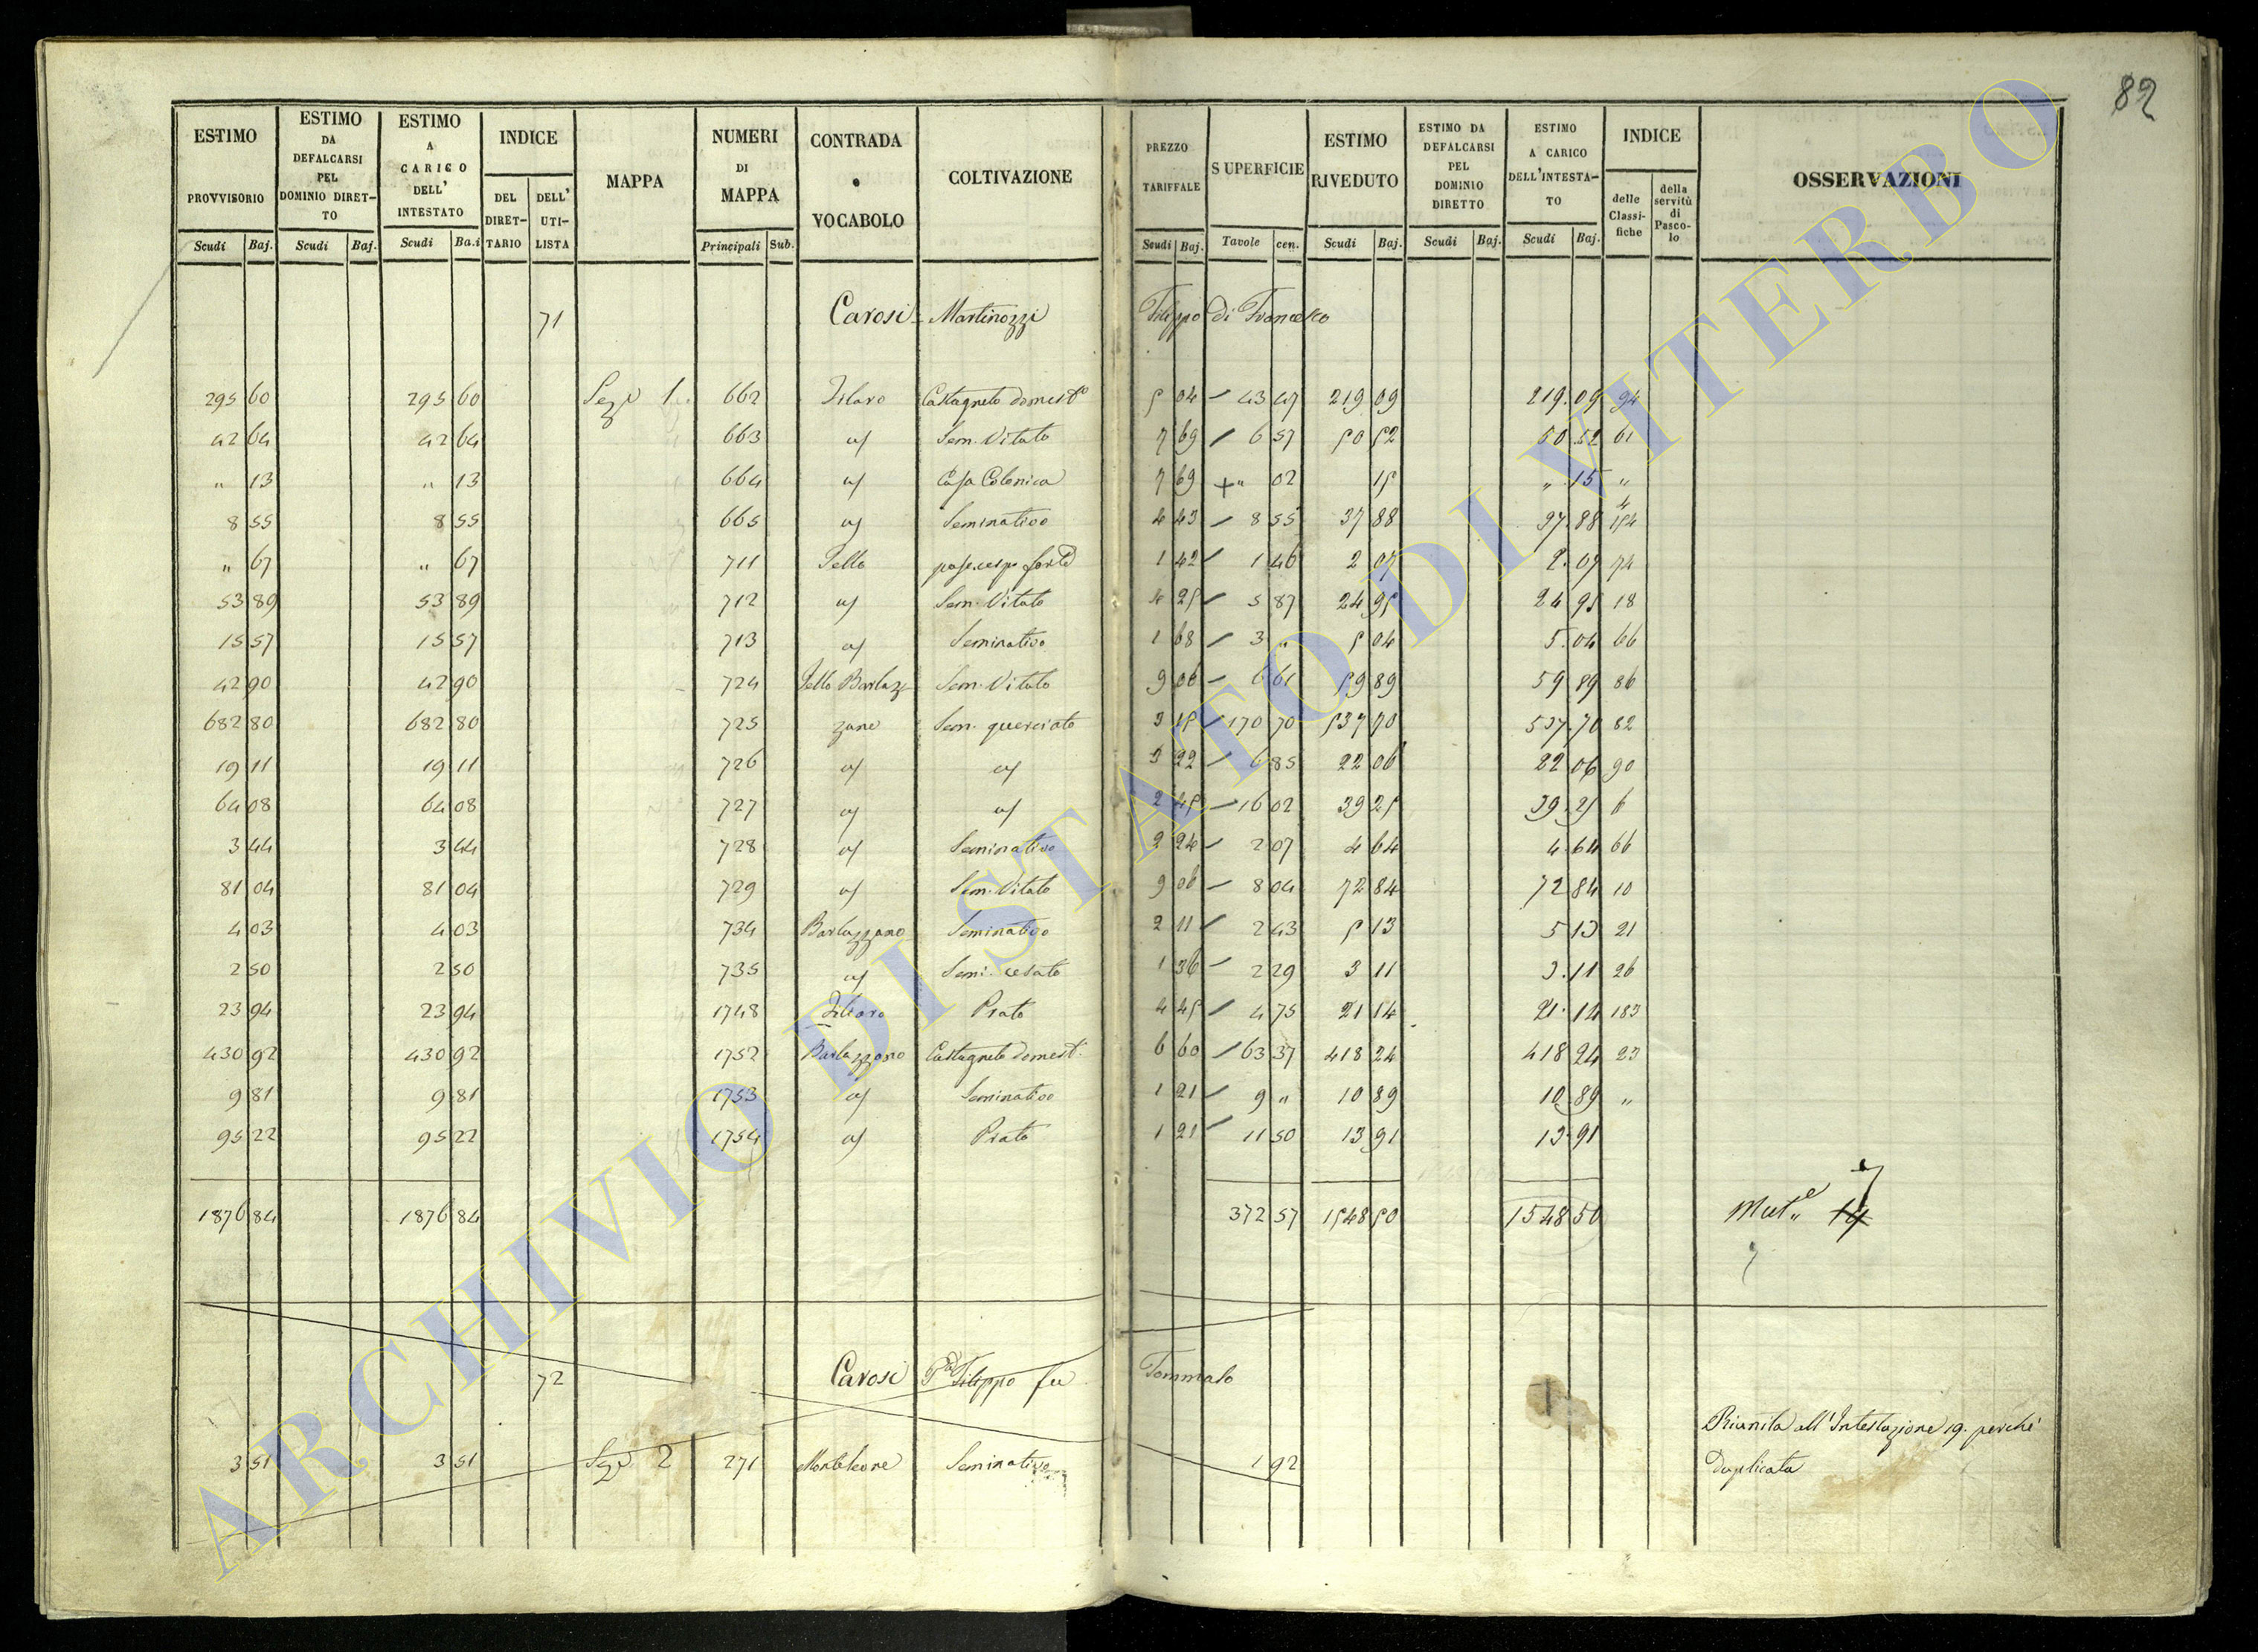 82
ESTIMO PROVVISORIO Scudi Baj.
ESTIMO DA DEFALCARSI PEL DOMINIO DIRETTO Scudi Baj.
ESTIMO A CARICO DELL' INTESTATO Scudi Ba.i
INDICE DEL DIRETTARIO DELL' UTILISTA
MAPPA
NUMERI DI MAPPA Principali Sub.
CONTRADA o VOCABOLO
COLTIVAZIONE
PREZZO TARIFFALE Scudi Baj.
SUPERFICIE Tavole cen.
ESTIMO RIVEDUTO Scudi Baj.
ESTIMO DA DEFALCARSI PEL DOMINIO DIRETTO Scudi Baj.
ESTIMO A CARICO DELL'INTESTATO Scudi Baj.
INDICE delle Classifiche della servitù di Pascolo
OSSERVAZIONI
71 Carosi Martinozzi Filippo di Francesco
295 60 295 60 Sez.e 1. 662 Castagneto domest.o 5 04 – 43 47 219 09 219.09 94
42 64 42 64 663 Sem. Vitato 7 69 – 6 57 50 52 50 52 61
" 13 " 13 664 Casa Colonica 7 69 + " 02 15 " 15 "
8 55 8 55 665 Seminativo 4 43 – 8 55 37 88 37.88
" 67 " 67 711 1 42 – 1 46 2 07 2.07 74
53 89 53 89 712 Sem. Vitato 4 25 – 5 87 24 95 24 95 18
15 57 15 57 713 Seminativo 1 68 – 3 " 5 04 5.04 66
42 90 42 90 724 Sem. Vitato 9 06 – 6 61 59 89 59 89 86
682 80 682 80 725 zano Sem. querciato 3 15 – 170 70 537 70 537.70 82
19 11 19 11 726 3 22 – 6 85 22 06 22 06 90
64 08 64 08 727 2 45 – 16 02 39 25 39.25 6
3 44 3 44 728 Seminativo 2 24 – 2 07 4 64 4.64 66
81 04 81 04 729 Sem. Vitato 9 06 – 8 04 72 84 72 84 10
4 03 4 03 734 Barlazzano Seminativo 2 11 – 2 43 5 13 5 13 21
2 50 2 50 735 Semi. cesato 1 36 – 2 29 3 11 3.11 26
23 94 23 94 1748 Prato 4 45 – 4 75 21 14 21.14 183
430 92 430 92 1752 Barlazzano Castagneto domest. 6 60 – 63 37 418 24 418 24 23
9 81 9 81 1753 Seminativo 1 21 – 9 " 10 89 10.89 "
95 22 95 22 1754 Prato 1 21 – 11 50 13 91 13.91
1876 84 1876 84 372 57 1548 50 1548 50 Mut.e 14 7
72 Carosi Filippo fu Tommaso
3 51 3 51 Sez.e 2 271 Monteleone Seminativo 1 92
Riunita all'Intestazione 19. perchè
duplicata
ARCHIVIO DI STATO DI VITERBO